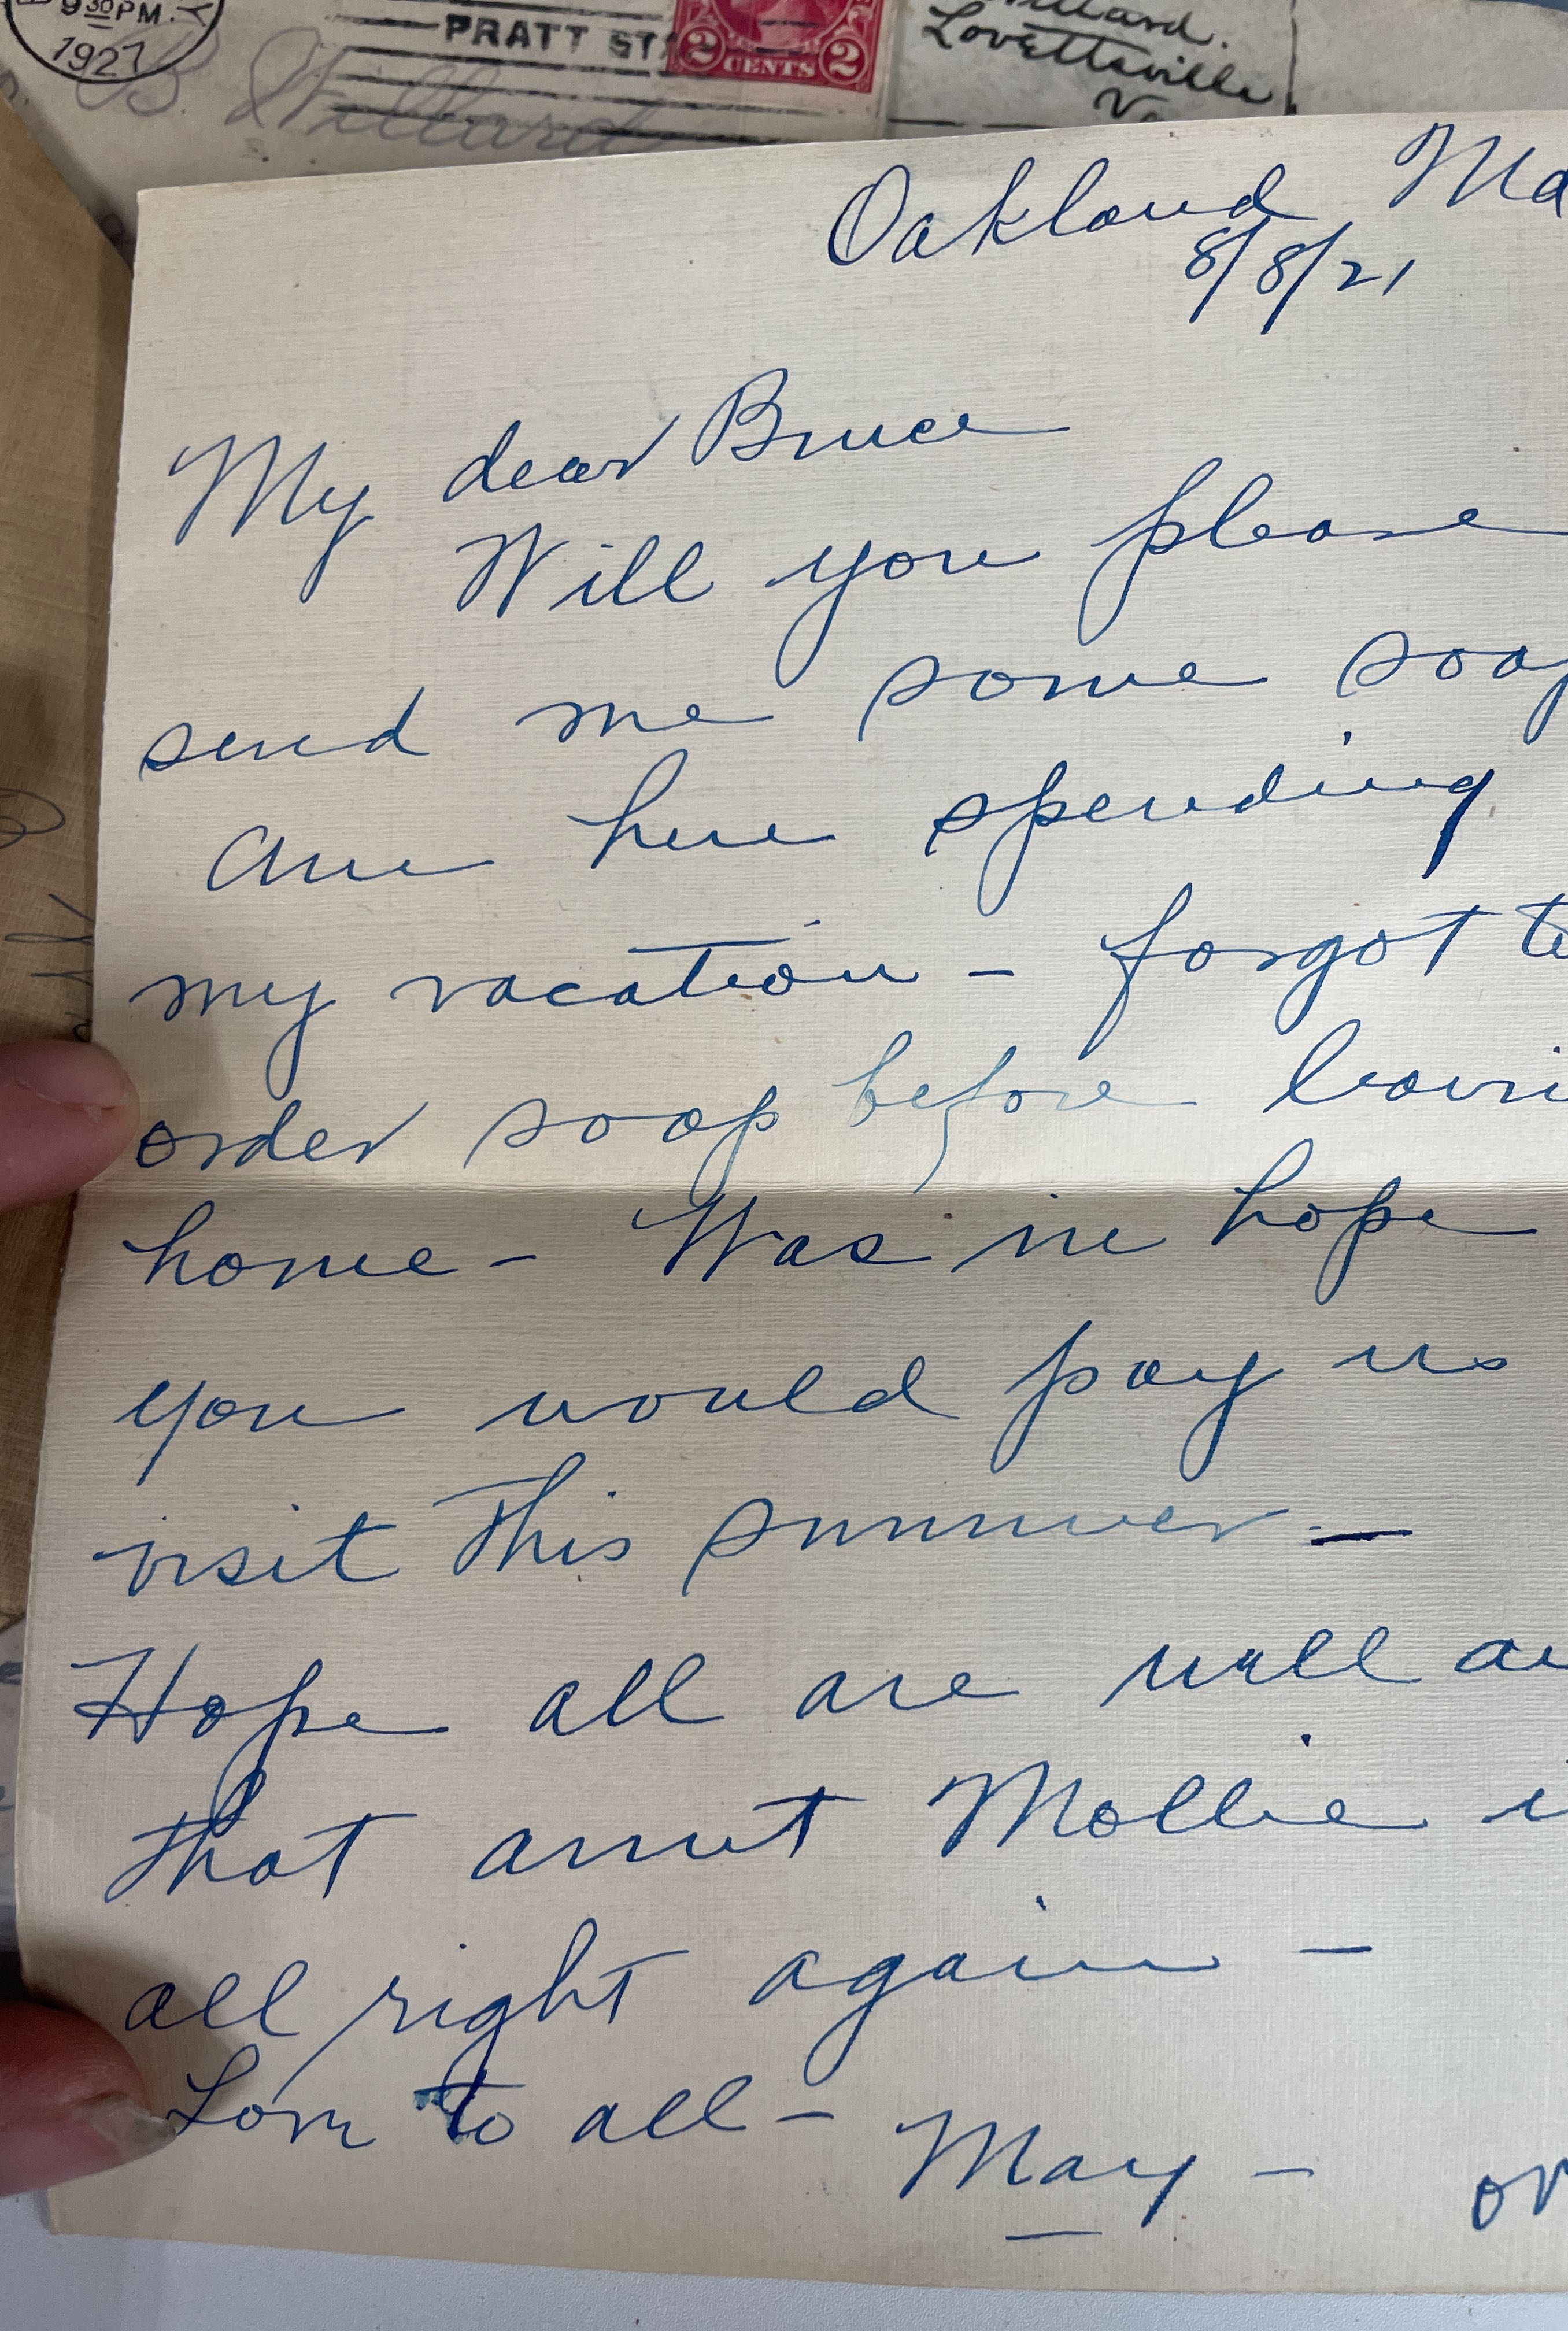 9 30 PM.
1927
PRATT STA
2 CENTS 2
B. Willard
Lovettsville
Va
Oakland Md
8/8/21
My dear Bruce
Will you please
send me some soap
Am here spending
my vacation - forgot to
order soap before leavi
home - Was in hope
you would pay us
visit this summer -
Hope all are well an
that aunt Mollie i
all right again -
Love to all -
May -
or